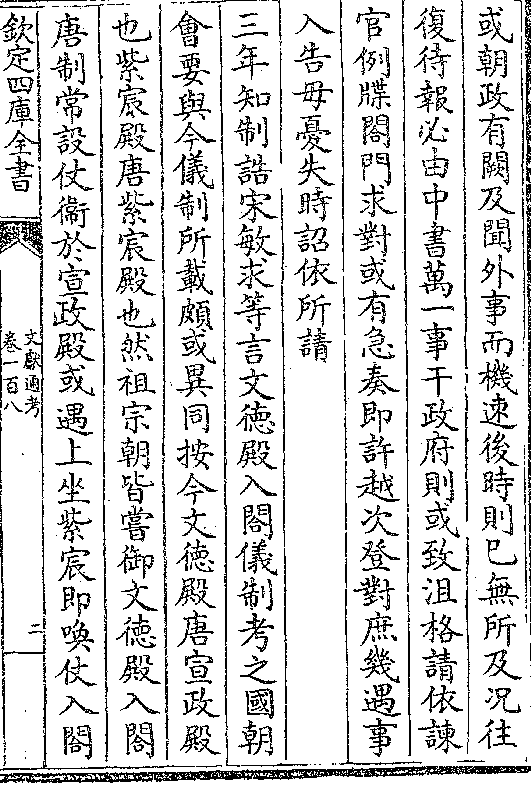 或朝政有闕及聞外事而機速後時則已無所及况往
復待報必由中書萬一事干政府則或致沮格請依諫
官例牒閤門求對或有急奏即許越次登對庶幾遇事
入告毋憂失時詔依所請
三年知制誥宋敏求等言文徳殿入閤儀制考之國朝
會要與今儀制所載頗或異同按今文徳殿唐宣政殿
也紫宸殿唐紫宸殿也然祖宗朝皆嘗御文徳殿入閤
唐制常設仗衞於宣政殿或遇上坐紫宸即喚仗入閤
欽定四庫全書
文獻通考
卷一百八
二